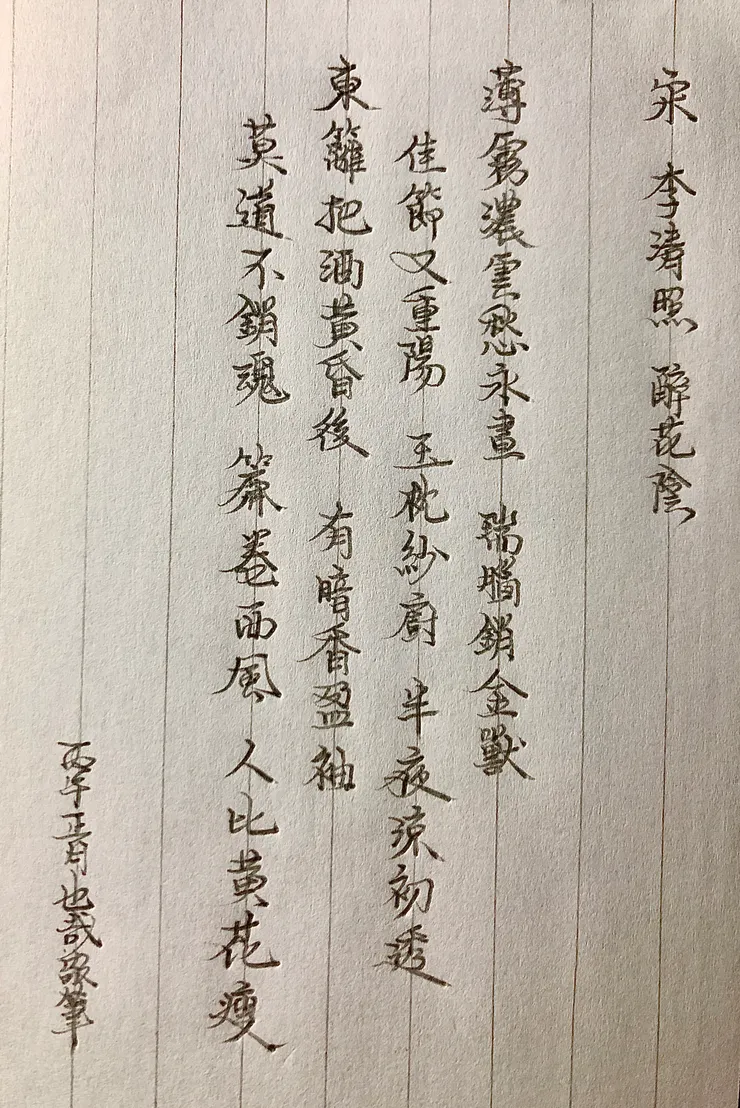 宋 李清照 醉花陰
薄霧濃雲愁永晝 瑞腦銷金獸
佳節又重陽 玉枕紗廚 半夜涼初透
東籬把酒黃昏後 有暗香盈袖
莫道不銷魂 簾卷西風 人比黃花瘦
丙午正月也哉筆